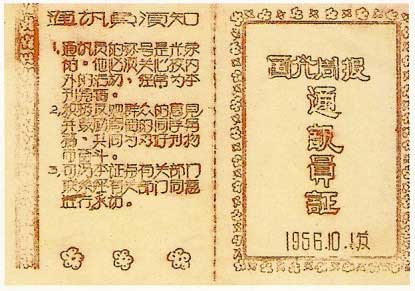 通讯员须知
1. 通讯员的称号是光荣
的。他必须关心校内
外的活动，经常为本
刊写稿。
2. 积极反映群众的意见
并鼓励周围的同学写
稿，共同为办好刊物
而奋斗。
3. 可凭本证与有关部门
联系
进行采访。
通讯員証
1956.10.1发